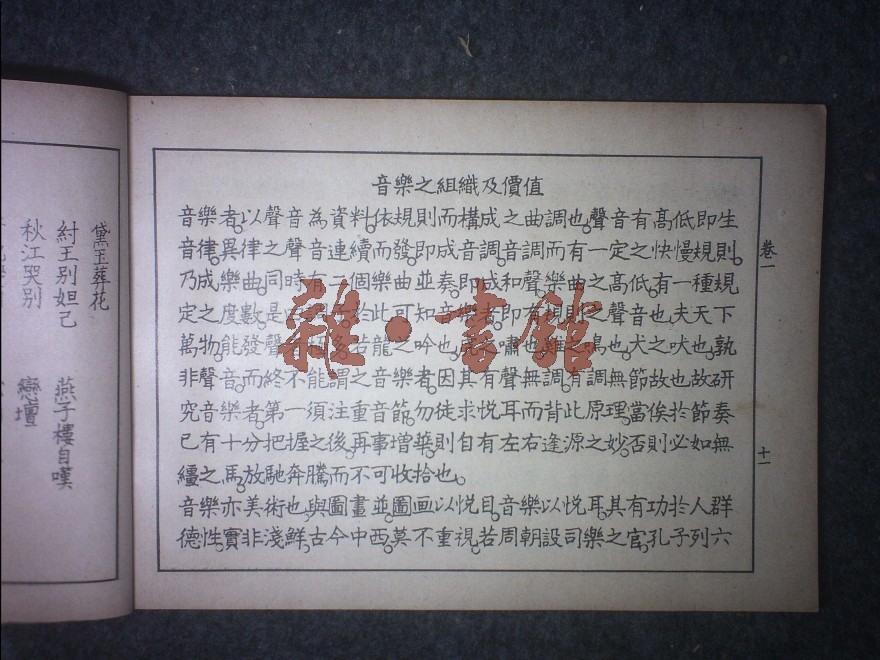 音樂之組織及價值
音樂者。以聲音為資料。依規則而構成之曲調也。聲音有高低。即生
音律。異律之聲音連續而發。即成音調。音調而有一定之快慢規則。
乃成樂曲。同時有二個樂曲並奏。即成和聲。樂曲之高低。有一種規
定之度數。是 於此可知音樂者。即有規則之聲音也。夫天下
萬物。能發聲 若龍之吟也。虎之嘯也。雞之鳴也。犬之吠也。孰
非聲音。而終不能謂之音樂者。因其有聲無調。有調無節故也。故研
究音樂者。第一須注重音節。勿徒求悅耳而背此原理。當俟於節奏
已有十分把握之後。再事增華。則自有左右逢源之妙。否則必如無
繮之馬。放馳奔騰而不可收拾也。
音樂亦美術也。與圖畫並。圖画以悅目。音樂以悅耳。其有功於人群
德性。實非淺鮮。古今中西。莫不重視。若周朝設司樂之官。孔子列六
卷一
十一
黛玉葬花
紂王别妲己
燕子樓自嘆
秋江哭别
戀壇
雜·書館